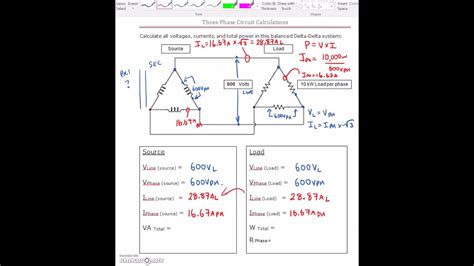 Three Phase Circuit Calculations
Calculate all voltages, currents, and total power in this balanced Delta-Delta system:
IL=16.67A x √3 = 28.87AL
P=VxI
Source
Load
IPH = 10,000W
600V
IPH=16.67A
SEC
PRI
?
600VPH
600 Volts
LINE
10 kW Load per phase
16.67APH
600VPH
VL=VPH
IL=IPH x √3
Source
VLine (source) = 600VL
VPhase (source) = 600VPH
ILine (source) = 28.87AL
IPhase (source) = 16.67APH
VA Total =
Load
VLine (Load) = 600VL
VPhase (Load) = 600VPH
ILine (Load) = 28.87AL
IPhase (Load) = 16.67APH
W Total =
RPhase =